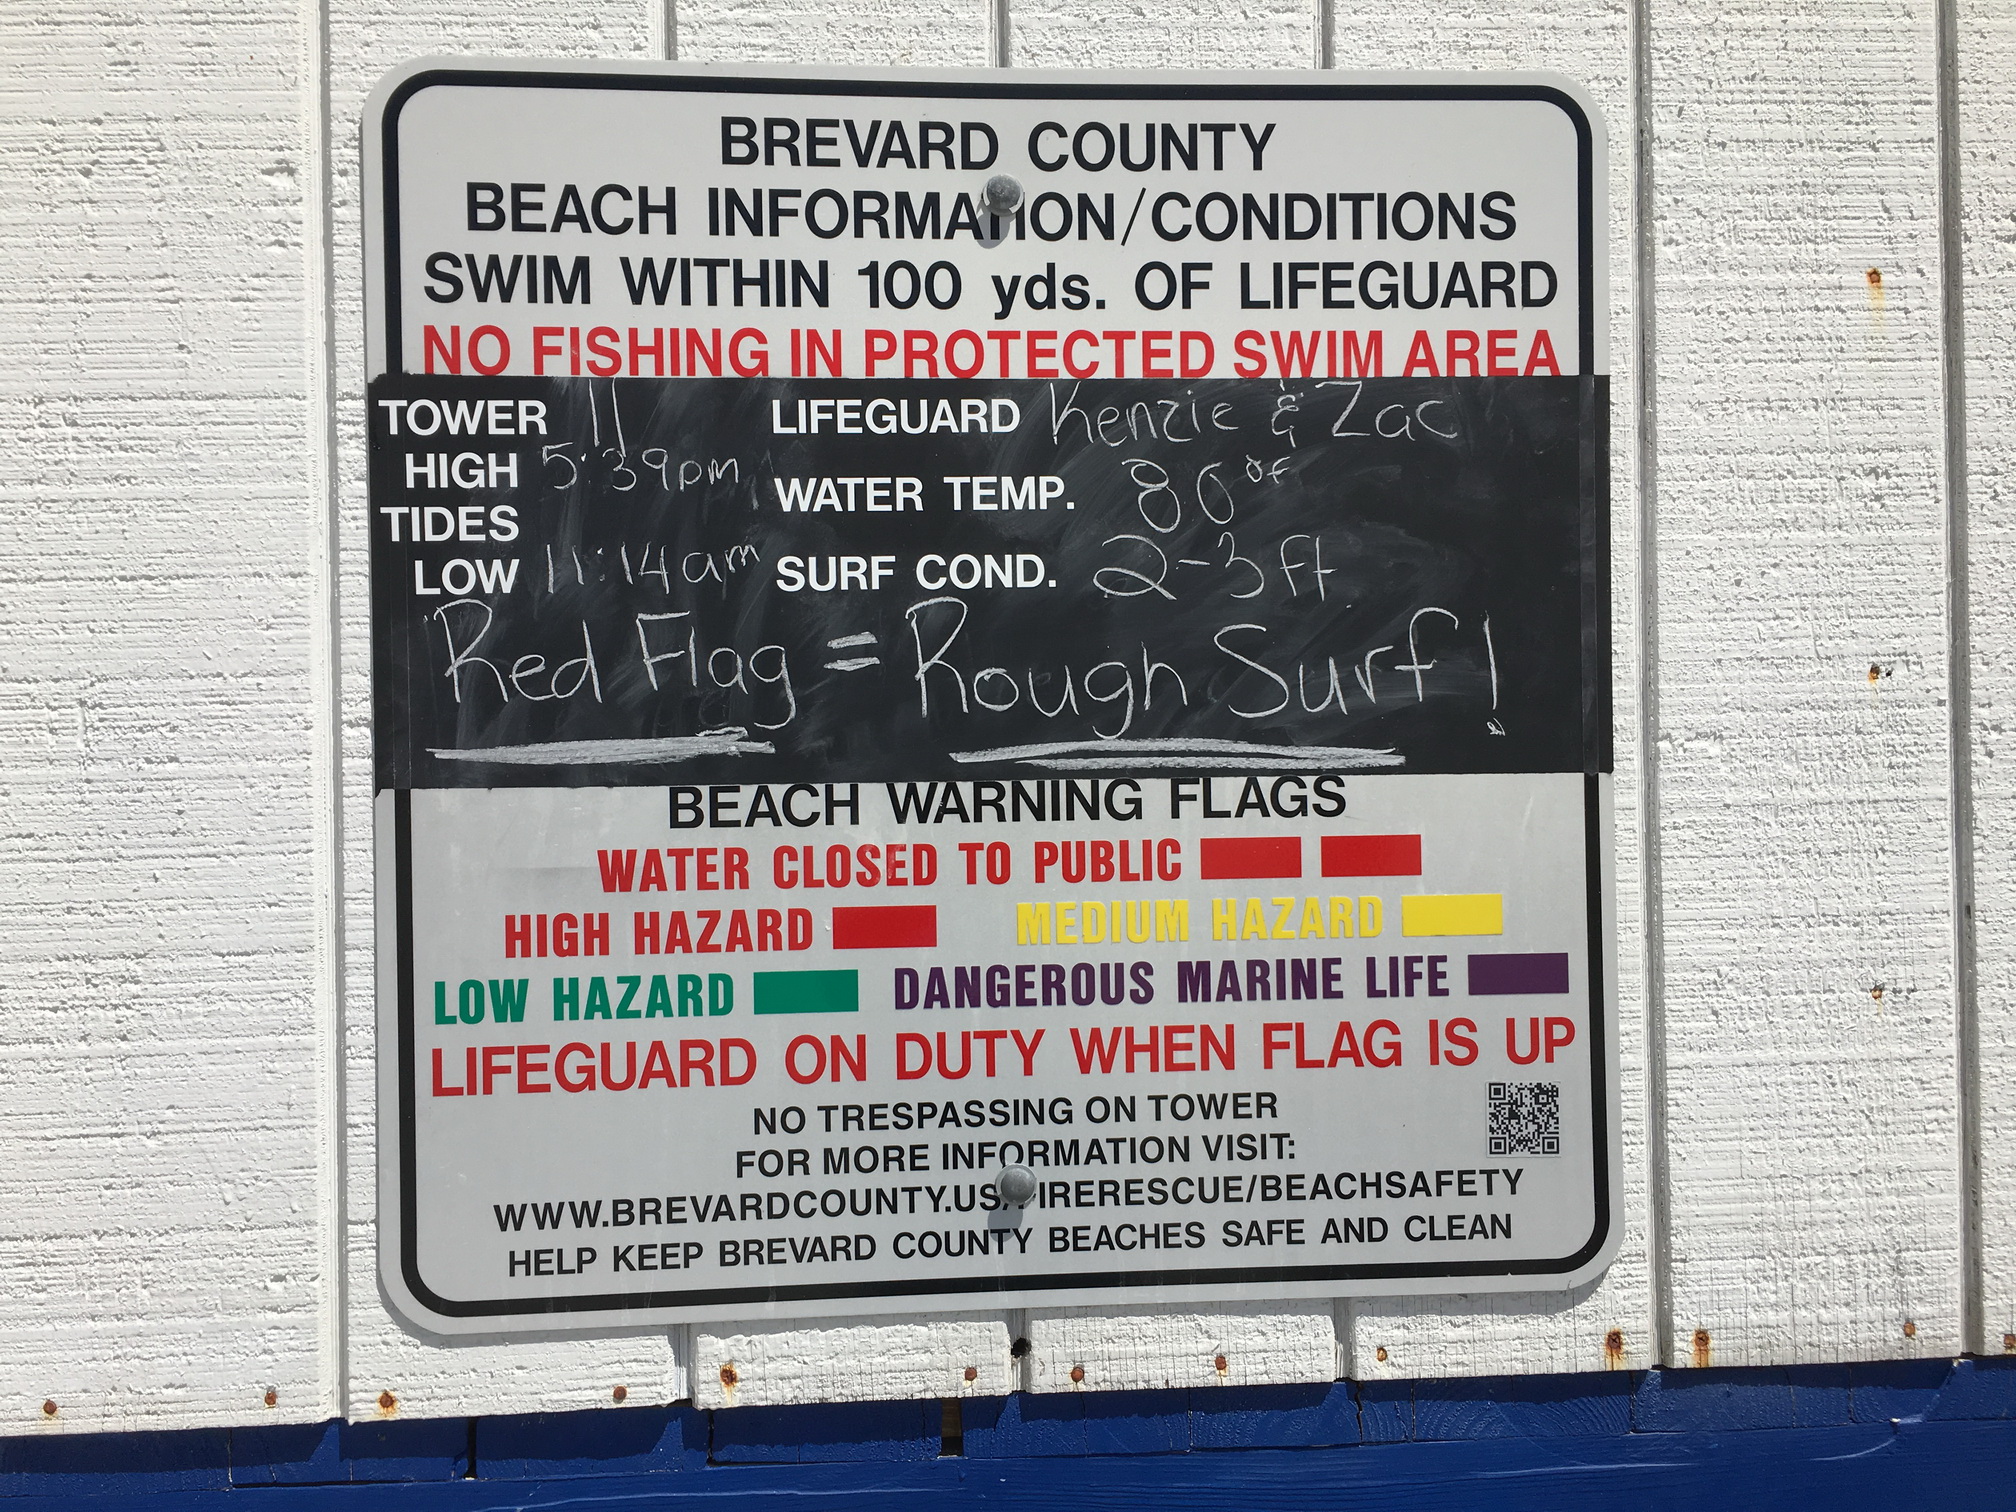 BREVARD COUNTY
BEACH INFORMATION/CONDITIONS
SWIM WITHIN 100 yds. OF LIFEGUARD
NO FISHING IN PROTECTED SWIM AREA
TOWER 11 LIFEGUARD Kenzie & Zac
HIGH 5:39pm WATER TEMP. 80°f
TIDES
LOW 11:14am SURF COND. 2-3ft
Red Flag = Rough Surf!
BEACH WARNING FLAGS
WATER CLOSED TO PUBLIC
HIGH HAZARD MEDIUM HAZARD
LOW HAZARD DANGEROUS MARINE LIFE
LIFEGUARD ON DUTY WHEN FLAG IS UP
NO TRESPASSING ON TOWER
FOR MORE INFORMATION VISIT:
WWW.BREVARDCOUNTY.US/FIRERESCUE/BEACHSAFETY
HELP KEEP BREVARD COUNTY BEACHES SAFE AND CLEAN